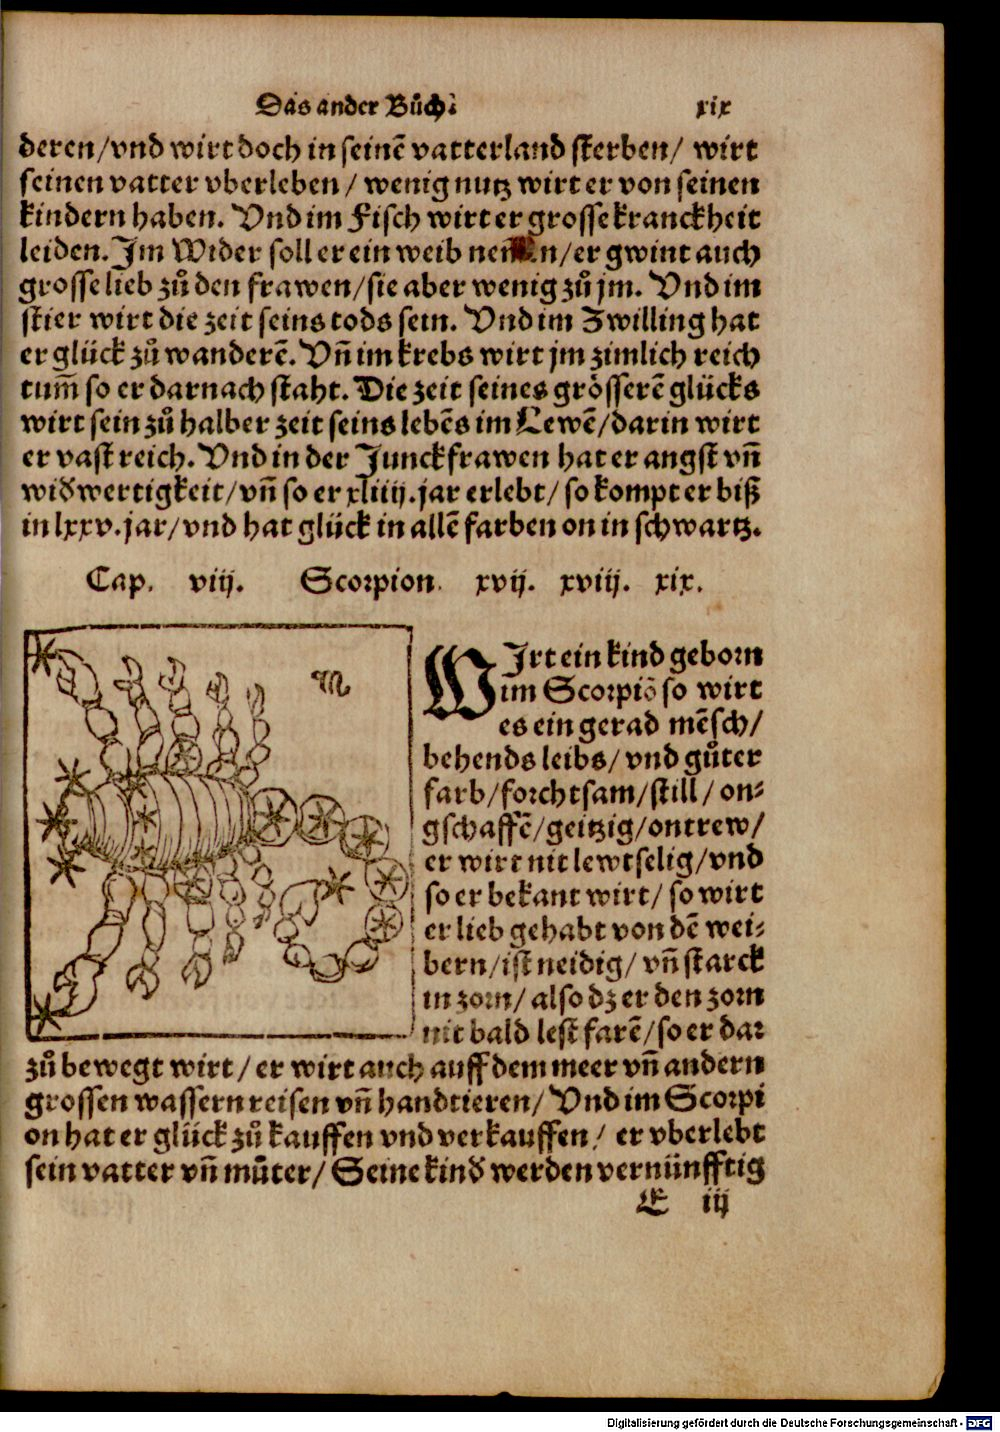 Das ander Bůch. xix
deren/vnd wirt doch in seinē vatterland sterben/ wirt
seinen vatter vberleben/ wenig nutz wirt er von seinen
kindern haben. Vnd im Fisch wirt er grosse kranckheit
leiden. Im Wider soll er ein weib n/er gwint auch
grosse lieb zů den frawen/sie aber wenig zů jm. Vnd im
stier wirt die zeit seins tods sein. Vnd im Zwilling hat
er glück zů wanderē. Vn̄ im krebs wirt jm zimlich reich
tum̄ so er darnach staht. Die zeit seines grösserē glücks
wirt sein zů halber zeit seins lebēs im Lewē/darin wirt
er vast reich. Vnd in der Junckfrawen hat er angst vn̄
widwertigkeit/vn̄ so er xliiij.jar erlebt/ so kompt er biß
in lxxv.jar/vnd hat glück in allē farben on in schwartz.
Cap. viij. Scorpion. xvij. xviij. xix.
♏
WIrt ein kind geborn
im Scorpiō so wirt
es ein gerad mēsch/
behends leibs/ vnd gůter
farb/forchtsam/still/ on⸗
gschaffē/geitzig/ontrew/
er wirt nit lewtselig/vnd
so er bekant wirt/ so wirt
er lieb gehabt von dē wei⸗
bern/ist neidig/ vn̄ starck
in zorn/ also dz er den zorn
nit bald lest farē/so er dar
zů bewegt wirt/ er wirt auch auff dem meer vn̄ andern
grossen wassern reisen vn̄ handtieren/ Vnd im Scorpi
on hat er glück zů kauffen vnd verkauffen/ er vberlebt
sein vatter vn̄ můter/ Seine kind werden vernünfftig
E iij
Digitalisierung gefördert durch die Deutsche Forschungsgemeinschaft - DFG